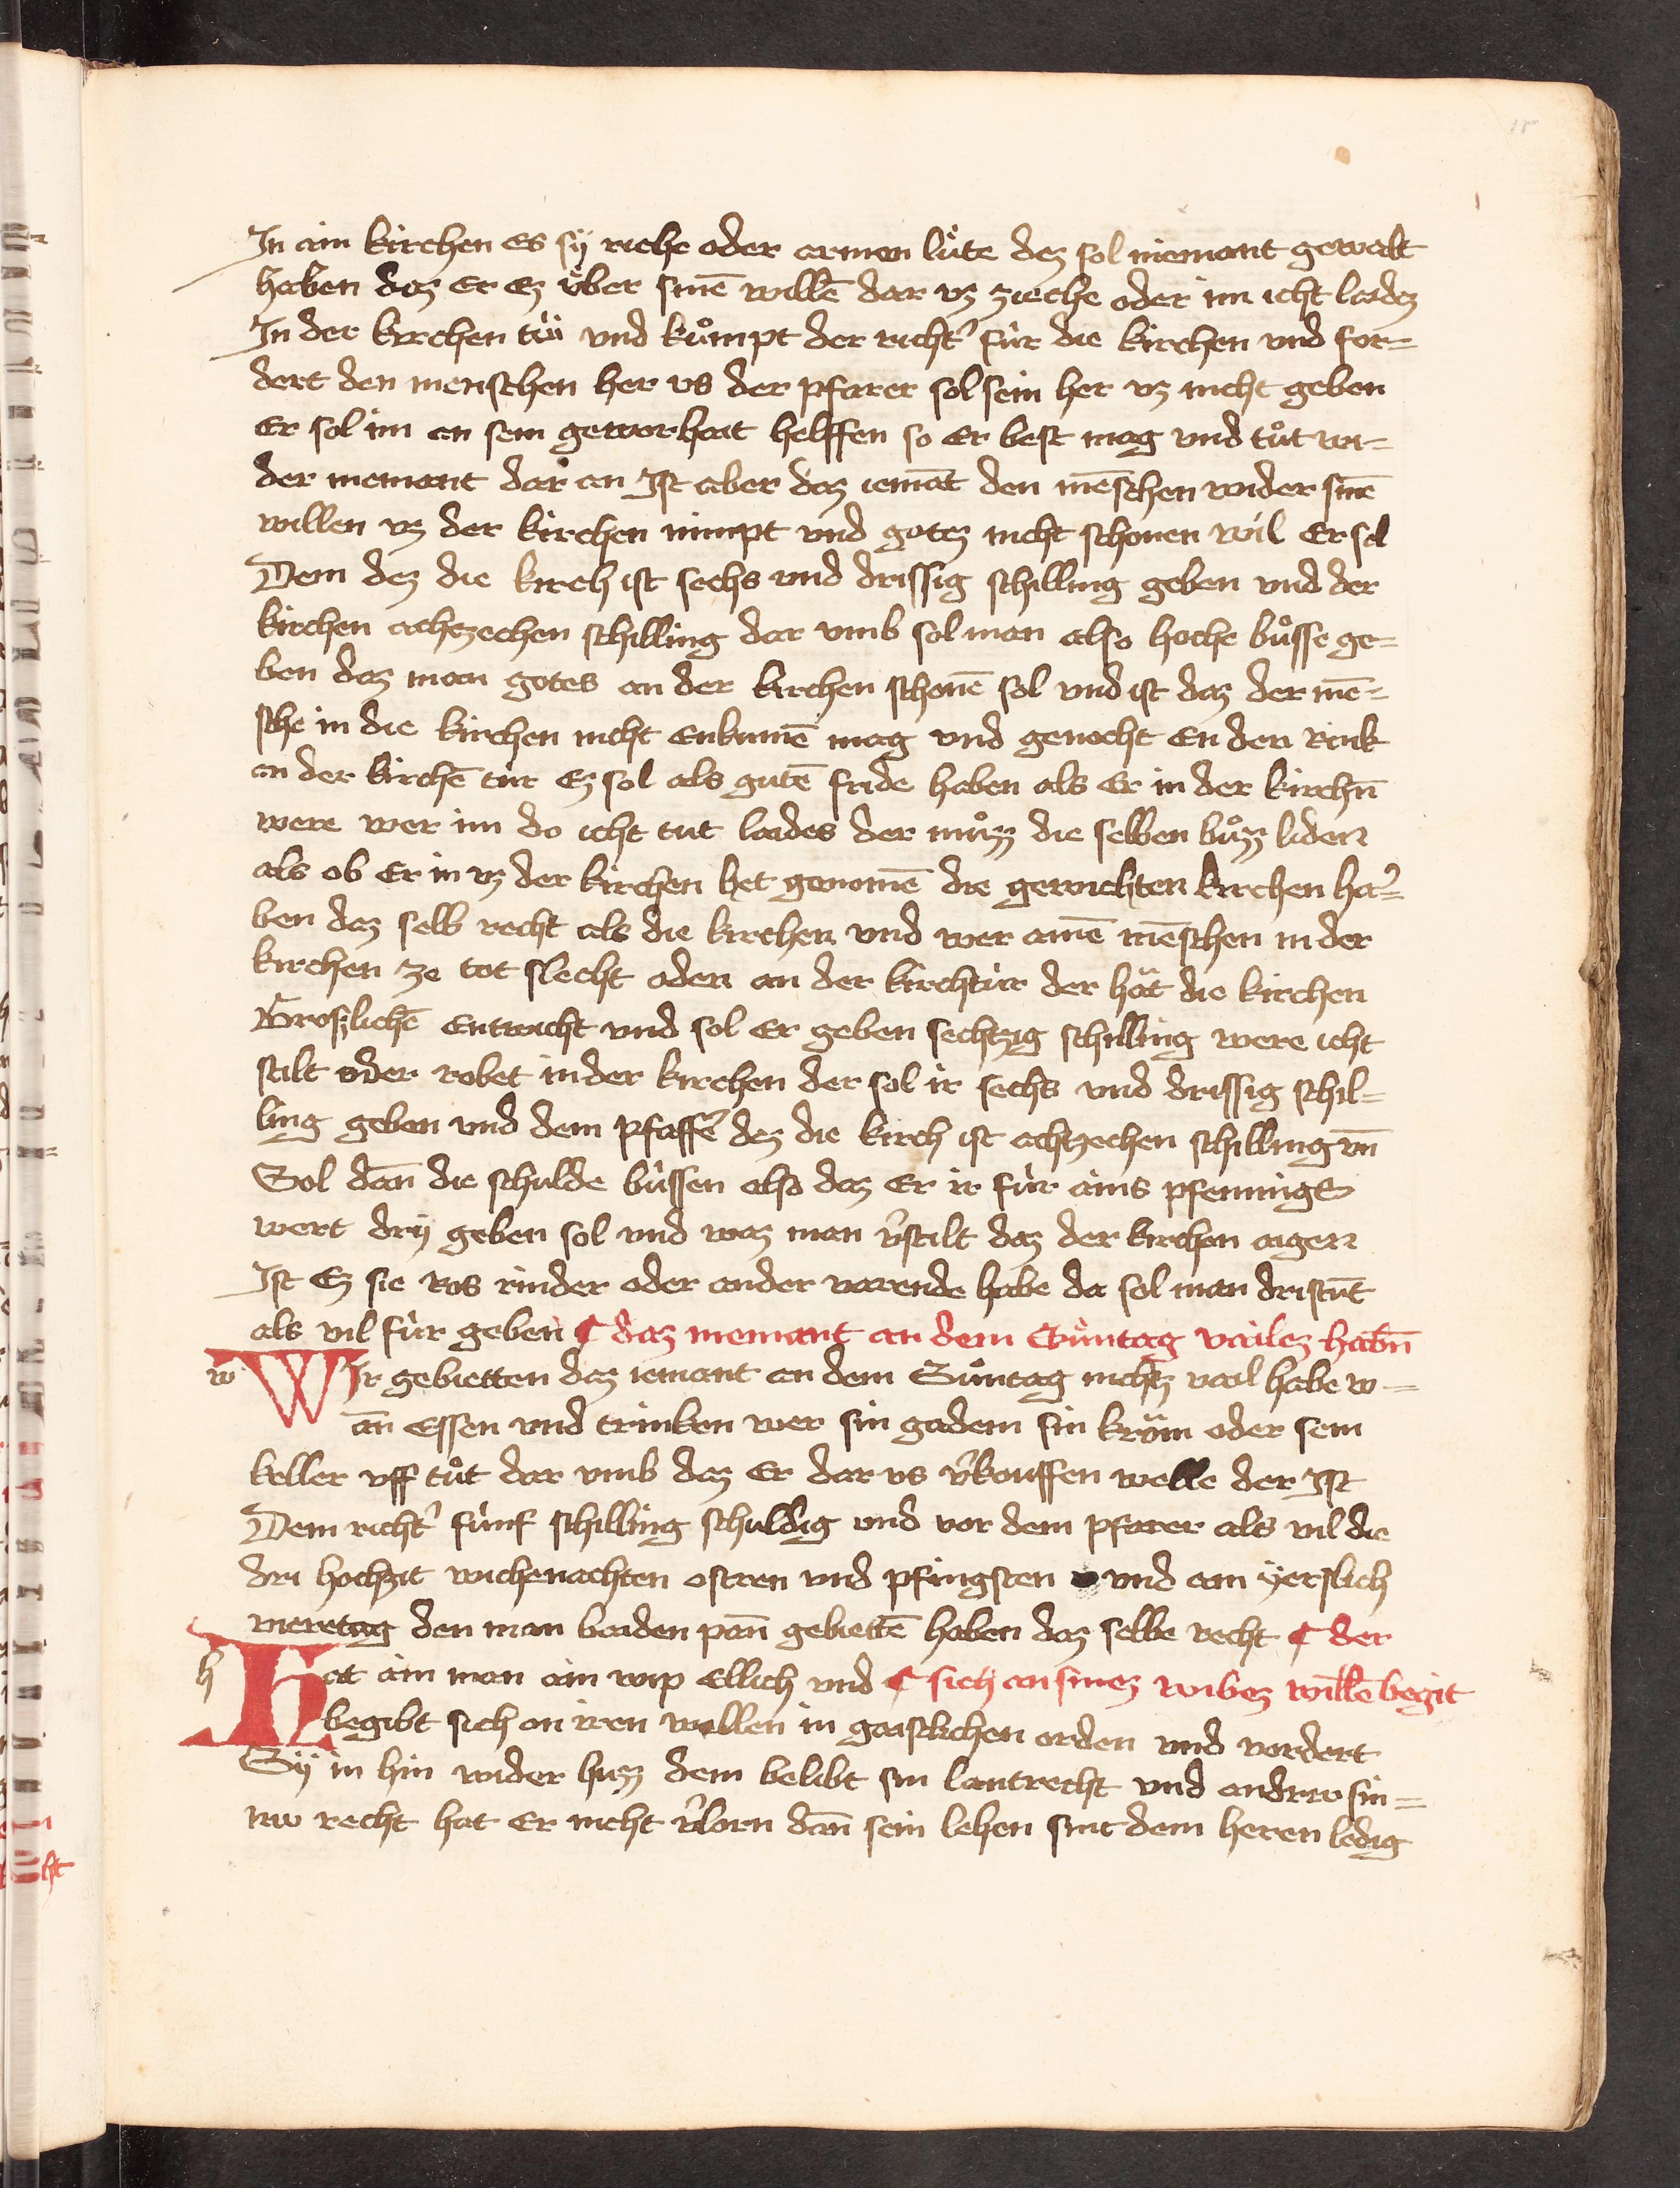 In ain kirchen es sÿ riche oder armen lu̇te dez sol niemant gewalt
haben daz er ez u̇ber sinē willē dar vz zieche oder im icht laidez
In der kirchen tu̇ vnd ku̇mpt der richt' fu̇r die kirchen vnd for=
dert den menschen her vs der pfarer sol sein her vz nicht geben
Er sol im an sein gewarhait helffen so er best mag vnd tu̇t wi=
der niemant dar an Ist aber daz iemāt den mēschen wider sinē
willen vz der kirchen nimpt vnd gotez nicht schonen wil er sol
Dem dez die kirch ist sechs vnd drissig schilling geben vnd der
kirchen achzechen schilling dar vmb sol man also hoche bu̇sse ge=
ben daz man gotes an der kirchen schonē sol vnd ist daz der mē=
sche in die kirchen nicht enkumē mag vnd genacht en den Rink
an der kirchē tu̇r ez sol als gutē fride haben als er in der kirchn̄
were wer im do icht tut laides der mu̇zz die selben bu̇zz liden
als ob er in vz der kirchen het genomē die gewichten kirchen ha=
ben daz selb recht als die kirchen vnd wer ainē mēschen in der
kirchen ze tot slecht oder an der kirchtu̇r der hät die kirchen
Groszlichē entwicht vnd sol er geben sechtzig schilling were icht
stilt oder robet in der kirchen der sol ir sechs vnd drissig schil=
ling geben vnd dem pfaffē dez die kirch ist achtzechen schilling vn̄
Sol dān die schulde bu̇ssen also daz er ir fu̇r ains pfennings
wert drÿ geben sol vnd waz man v'stilt daz der kirchen aigen
Ist ez sie Ros rinder oder ander varende habe da sol man dristūt
als vil fu̇r geben ¶ daz niemant an dem Su̇ntag vailez habn̄
w WIr gebietten daz iemant an dem Su̇ntag nichtz vail habe w=
an̄ essen vnd trinken wer sin gadem sin kräm oder sein
keller vff tu̇t dar vmb daz er dar vs v'kouffen welle der Ist
Dem richt' fu̇nf schilling schuldig vnd vor dem pfarer als vil die
dri hochzit wichenachten ostren vnd pfingsten vnd ain ÿerslich
viretag den man baiden pān gebiettē haben daz selbe recht ¶ der
h Hat ain man ain wip ellich vnd ¶ sich an sinez wibez willē begit
begibt sich on iren willen in gaistlichen orden vnd vordert
Sÿ in hin wider husz dem belibt sin lantrecht vnd andrw sin=
nw recht hat er nicht v'lorn dān sein lehen sint dem heren ledig